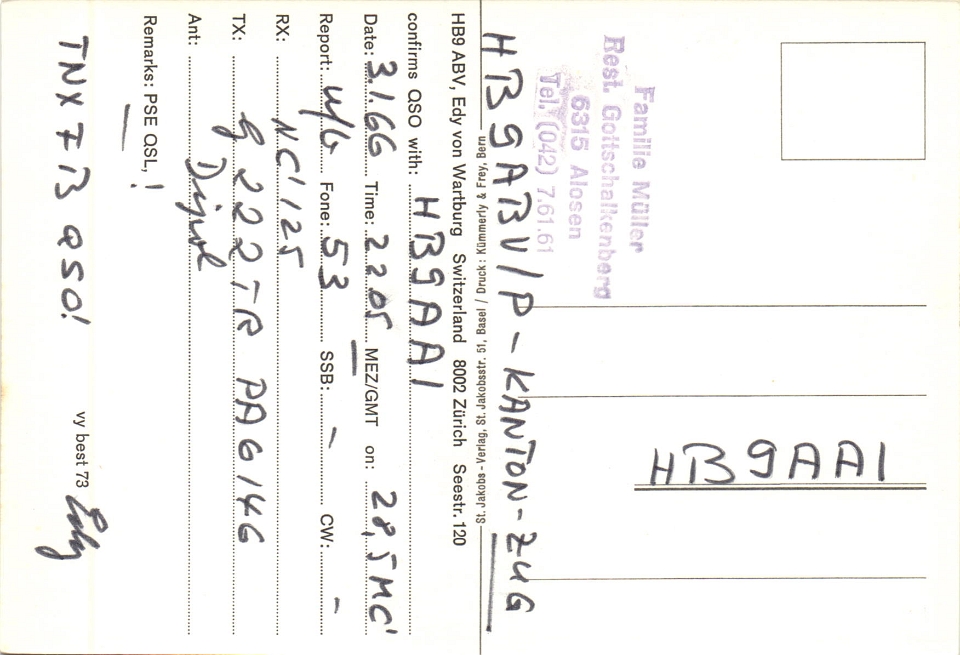 HB9ABV/P - KANTON - ZUG
HB9 ABV, Edy von Wartburg Switzerland 8002 Zürich Seestr. 120
confirms QSO with: HB9AAI
Date: 3.1.66 Time: 2205 MEZ/GMT on: 28,5 MC'
Report: Fone: 53 SSB: - CW: -
RX: NC'125
TX: 222TR PA6146
Ant: Dipol
Remarks: PSE QSL, !
TNX 7B QSO!
vy best 73 Edy
St. Jakobs-Verlag, St. Jakobsstr. 51, Basel / Druck: Kümmerly & Frey, Bern
Familie Müller
Rest. Gottschalkenberg
6315 Alosen
Tel. (042) 7.61.61
HB9AAI